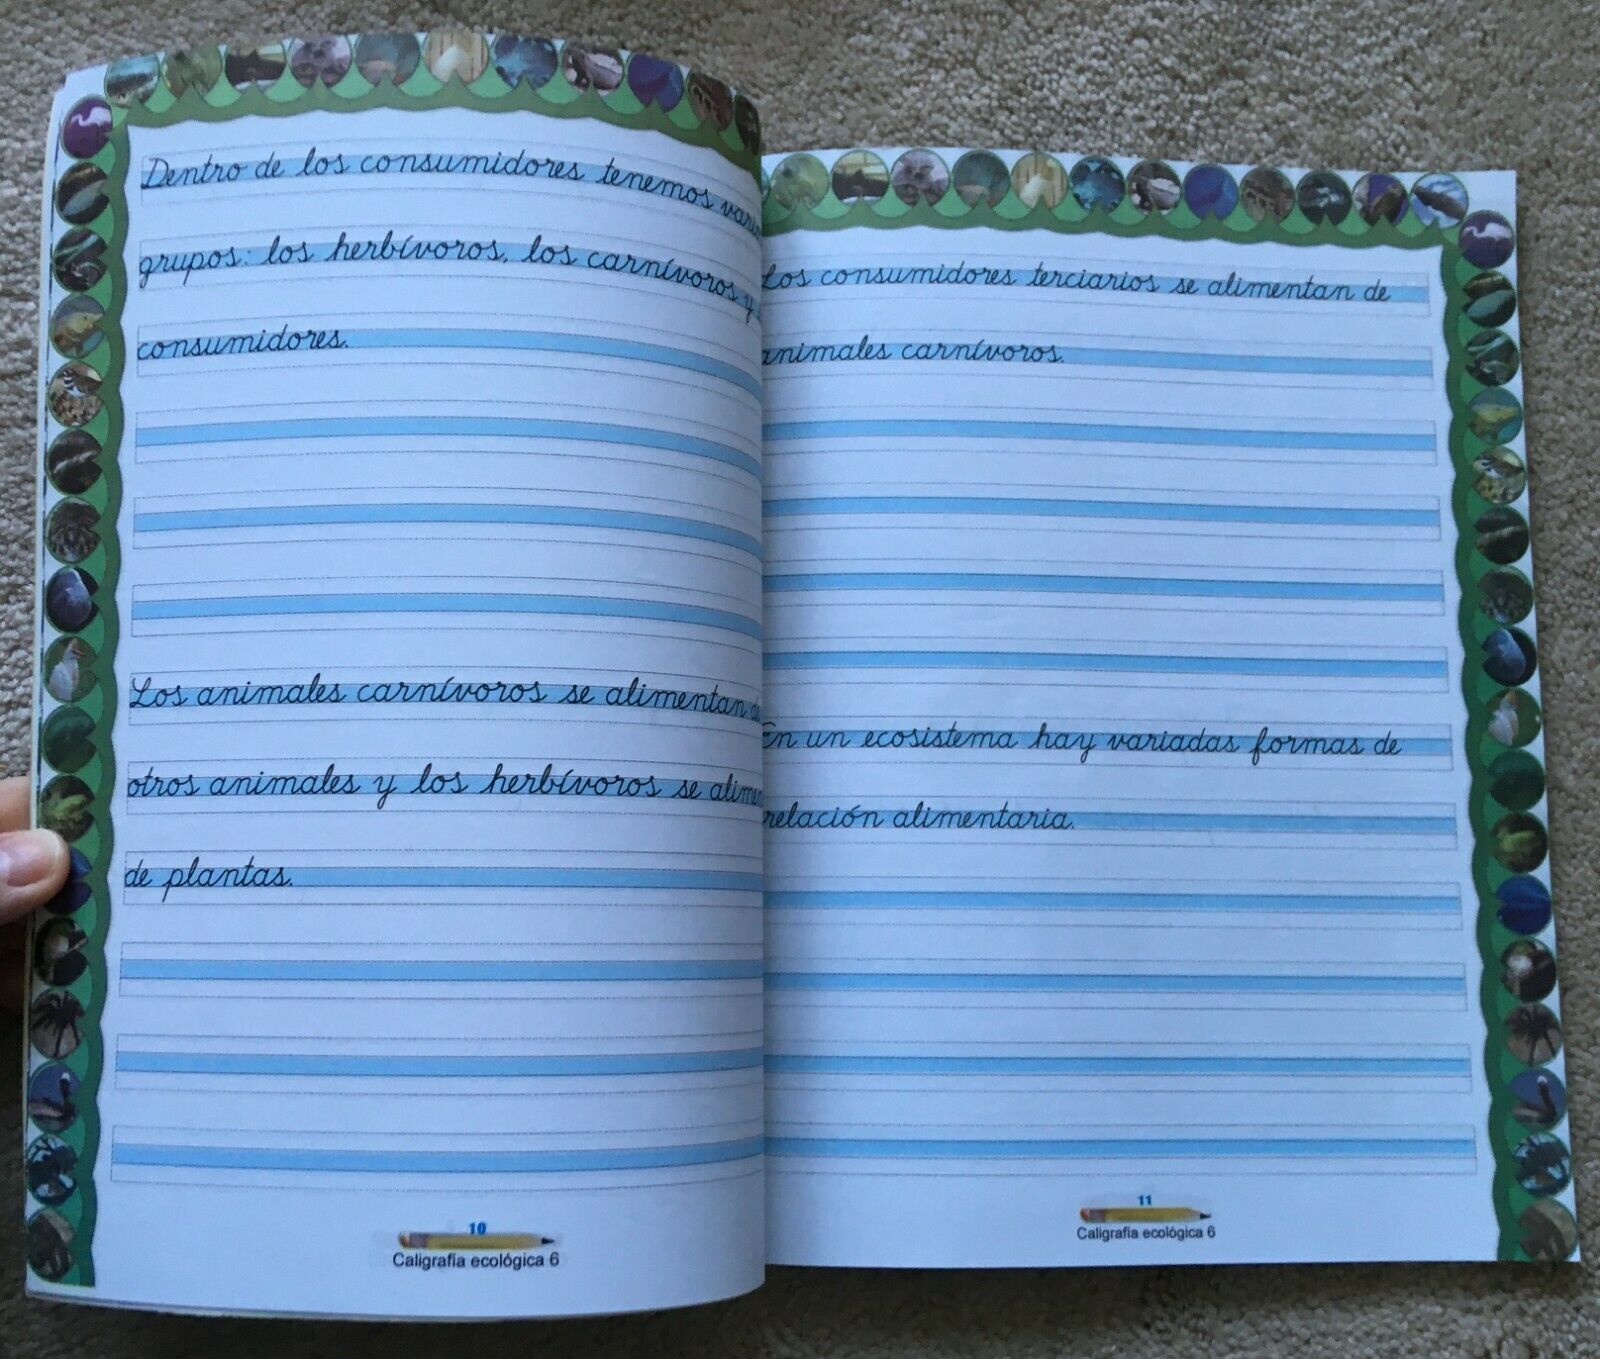 Dentro de los consumidores tenemos
grupos: los herbívoros, los carnívoros y
consumidores.
Los animales carnívoros se alimentan de
otros animales y los herbívoros se
de plantas.
10
Caligrafía ecológica 6
Los consumidores terciarios se alimentan de
animales carnívoros.
En un ecosistema hay variadas formas de
relación alimentaria.
11
Caligrafía ecológica 6